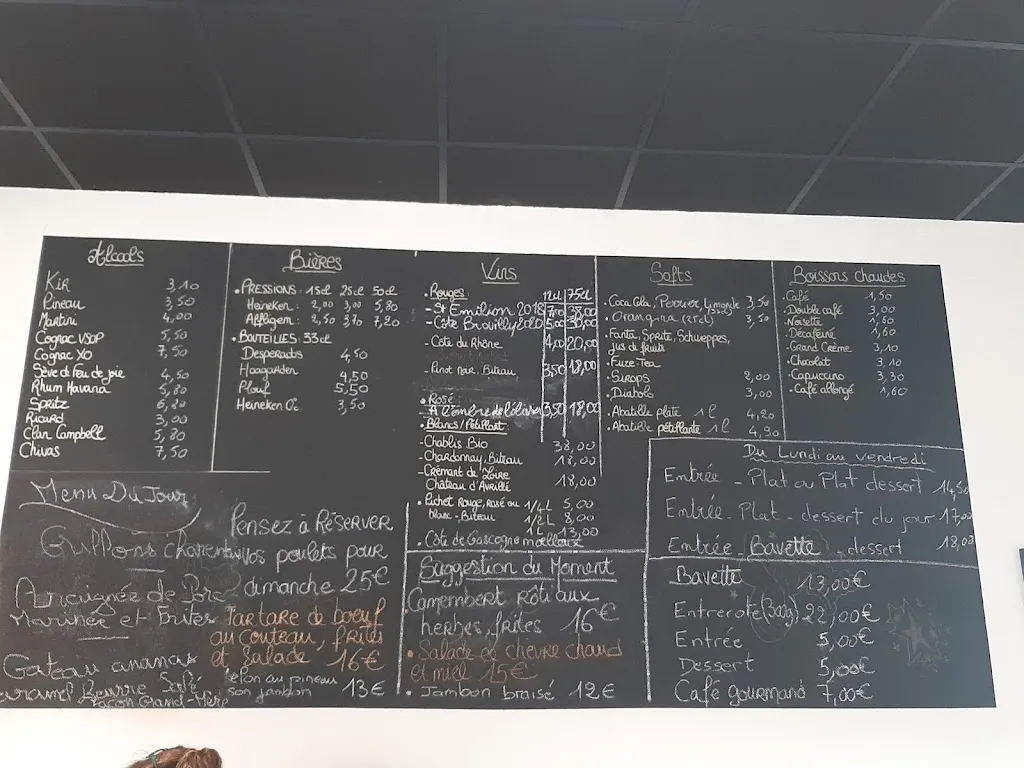 Alcools
Kir 3,10
Pineau 3,50
Martini 4,00
Cognac VSOP 5,50
Cognac XO 7,50
Sève d feu de joie 4,50
Rhum Havana 5,80
Spritz 6,80
Ricard 3,00
Clan Campbell 5,80
Chivas 7,50
Bières
• PRESSIONS: 15cl 25cl 50cl
Heineken: 2,00 3,00 5,80
Affligem: 2,50 3,70 7,20
• BOUTEILLES: 33cl
Desperados 4,50
Hoegarden 4,50
Plouf 5,50
Heineken 0° 3,50
Vins
• Rouges: 12cl 75cl
- St Emilion 2018 7,00 38,00
- Côte Brouilly 2020 5,00 30,00
- Côte du Rhône 4,00 20,00
- Pinot Noir, Buteau 3,50 18,00
• Rosé:
- A l'ombre de l'olivier 3,50 18,00
• Blancs/Pétillant:
- Chablis Bio 38,00
- Chardonnay, Buteau 18,00
- Crémant de Loire
Château d'Avrillé 18,00
• Pichet Rouge, rosé ou 1/4L 5,00
blanc - Buteau 1/2L 8,00
13,00
• Côte de Gascogne moelleux
Softs
• Coca Cola, Perrier, Limonade 3,50
• Orangina (25cl) 3,50
• Fanta, Sprite, Schweppes,
jus de fruits
• Fuze-Tea
• Sirops 2,00
• Diabolo 3,00
• Abatille plate 1l 4,20
• Abatille pétillante 1l 4,90
Boissons chaudes
• Café 1,50
• Double café 3,00
• Noisette 1,60
• Décaféiné 1,60
• Grand Crème 3,10
• Chocolat 3,10
• Capuccino 3,30
• Café allongé 1,60
Du Lundi au vendredi
Entrée - Plat ou Plat dessert 14,50
Entrée - Plat - dessert du jour 17,00
Entrée - Bavette - dessert 18,00
Bavette 13,00€
Entrecote (300g) 22,00€
Entrée 5,00€
Dessert 5,00€
Café gourmand 7,00€
Menu Du Jour
Grillons charentais
Araignée de Porc
Marinée et Frites
Gateau ananas
Caramel Beurre Salé
Façon Grand-Mère
Pensez à RÉSERVER
vos poulets pour
dimanche 25€
Tartare de boeuf
au couteau, frites
et salade 16€
Melon au pineau
son jambon 13€
Suggestion du Moment
Camembert rôti aux
herbes, frites 16€
• Salade de chèvre chaud
et miel 15€
• Jambon braisé 12€